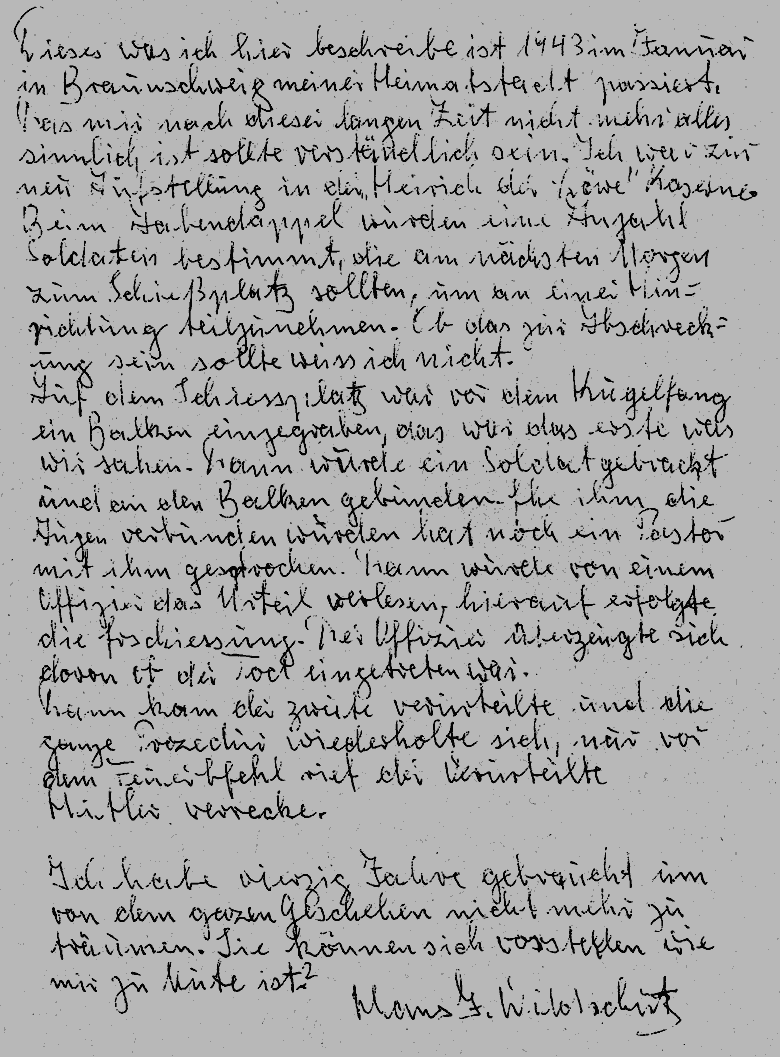 Dieses was ich hier beschreibe ist 1943 im Januar
in Braunschweig meiner Heimatstadt passiert.
Das mir nach dieser langen Zeit nicht mehr alles
sinnlich ist sollte verständlich sein. Ich war zur
neu Aufstellung in der Heinrich der "Löwe" Kaserne
Beim Abendappel wurden eine Anzahl
Soldaten bestimmt, die am nächsten Morgen
zum Schießplatz sollten, um an einer Hin=
richtung teilzunehmen. Ob das zur Abschreck=
ung sein sollte weiss ich nicht.
Auf dem Schiessplatz war vor dem Kugelfang
ein Balken eingegraben, das war das erste was
wir sahen. Dann wurde ein Soldat gebracht
und an den Balken gebunden. Ehe ihm die
Augen verbunden wurden hat noch ein Pastor
mit ihm gesprochen. Dann wurde von einem
Offizier das Urteil verlesen, hierauf erfolgte
die Erschiessung. Der Offizier überzeugte sich
davon ob der Tod eingetreten war.
Dann kam der zweite verurteilte und die
ganze Prozedur wiederholte sich, nur vor
dem Feuerbfehl rief der Verurteilte
Hitler verrecke.
Ich habe vierzig Jahre gebraucht um
von dem ganzen Geschehen nicht mehr zu
träumen. Sie können sich vorstellen wie
mir zu Mute ist?
Hans J. Wildschütz